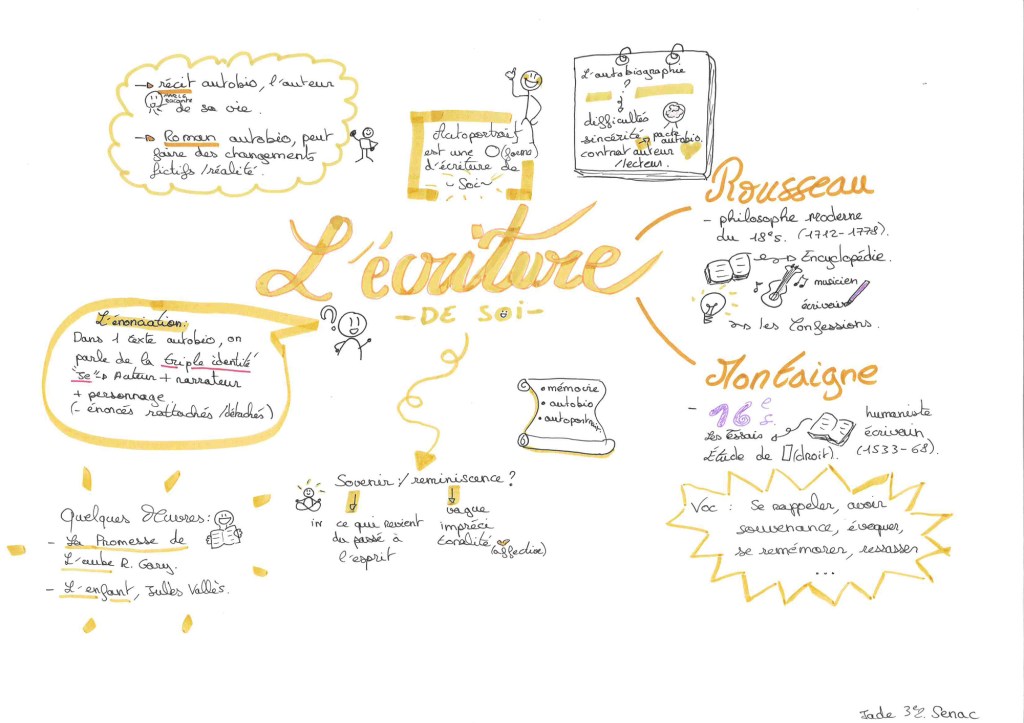 → récit autobio, l'auteur
parle
raconte
de sa vie.
→ Roman autobio, peut
faire des changements
fictifs / réalité.
Autoportrait
est une (forme)
d'écriture de
~ Soi ~
L'autobiographie
?
difficultés
sincérité → pacte
autobio.
contrat auteur
/lecteur.
L'écriture
- DE SOI -
Rousseau
- philosophe moderne
du 18e s. (1712-1778).
Encyclopédie.
musicien
écrivain
les Confessions.
Montaigne
- 16e s.
Les Essais
Étude de (droit).
humaniste
écrivain
(1533-68).
L'énonciation:
Dans 1 texte autobio, on
parle de la triple identité
"Je" → Auteur + narrateur
+ personnage
(- énoncés rattachés / détachés)
?
• mémoire
• autobio
• autoportrait.
Sovenir :/ reminiscence ?
in
ce qui revient
du passé à
l'esprit
vague
impréci
tonalité
(affective)
Quelques Œuvres:
- La Promesse de
L'aube R. Gary.
- L'enfant, Jules Vallès.
Voc : Se rappeler, avoir
souvenance, évoquer,
se remémorer, ressasser
...
Jade 3e2. Senac